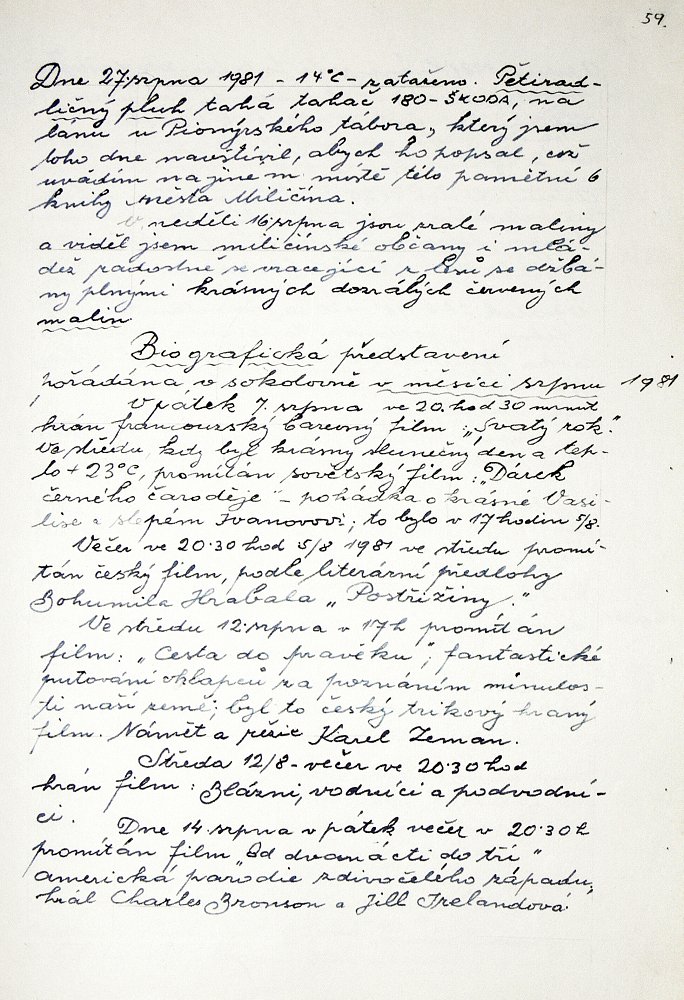 59.
Dne 27. srpna 1981 - 14°C - zataženo. Pětirad-
ličný pluh tahá tahač 180 - ŠKODA, na
lánu u Pionýrského tábora, který jsem
toho dne navštívil, abych ho popsal, což
uvádím na jiném místě této pamětní
knihy města Miličína.
V neděli 16. srpna jsou zralé maliny
a viděl jsem miličínské občany i mlá-
dež radostně se vracející z lesů se džbá-
ny plnými krásných dozrálých červených
malin
Biografická představení
pořádána v sokolovně v měsíci srpnu 1981
V pátek 7. srpna ve 20. hod 30 minut
hrán francouzský barevný film: „Svatý rok."
Ve středu, kdy byl krásný slunečný den a tep-
lo + 23°C, promítán sovětský film: „Dárek
černého čaroděje" - pohádka o krásné Vasi-
lise a slepém Ivanovovi; to bylo v 17 hodin 5/8.
Večer ve 20.30 hod 5/8 1981 ve středu promí-
tán český film, podle literární předlohy
Bohumila Hrabala „Postřižiny."
Ve středu 12. srpna v 17h promítán
film: „Cesta do pravěku"; fantastické
putování chlapců za poznáním minulos-
ti naší země; byl to český trikový hraný
film. Námět a režie Karel Zeman.
Středa 12/8 - večer ve 20.30 hod
hrán film: Blázni, vodníci a podvodní-
ci.
Dne 14. srpna v pátek večer v 20.30 h
promítán film „Od dvanácti do tří"
americká parodie zdivočelého západu,
hrál Charles Bronson a Jill Irelandová